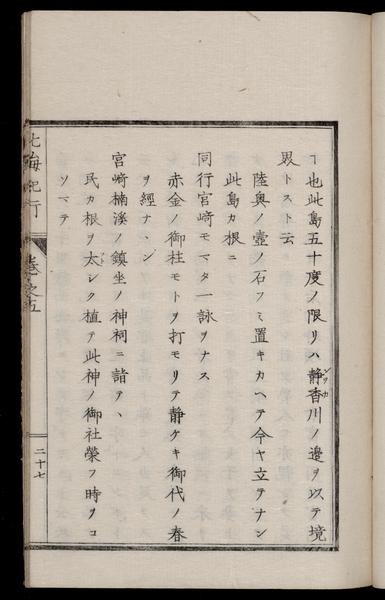 ヿ也此島五十度ノ限リハ静香川ノ邊ヲ以テ境
シツカ
界トスト云
陸奥ノ壺ノ石フミ置キカヘテ今ヤ立テナン
此島カ根ニ
同行宮﨑モマタ一詠ヲナス
赤金ノ御柱モトヲ打モリテ静ケキ御代ノ春
ヲ經ナヽン
宮﨑楠溪ノ鎮坐ノ神祠ニ詣テヽ
民カ根ヲ太シク植テ此神ノ御社榮フ時ヲコ
ソマテ
北海紀行
巻之五
二十七